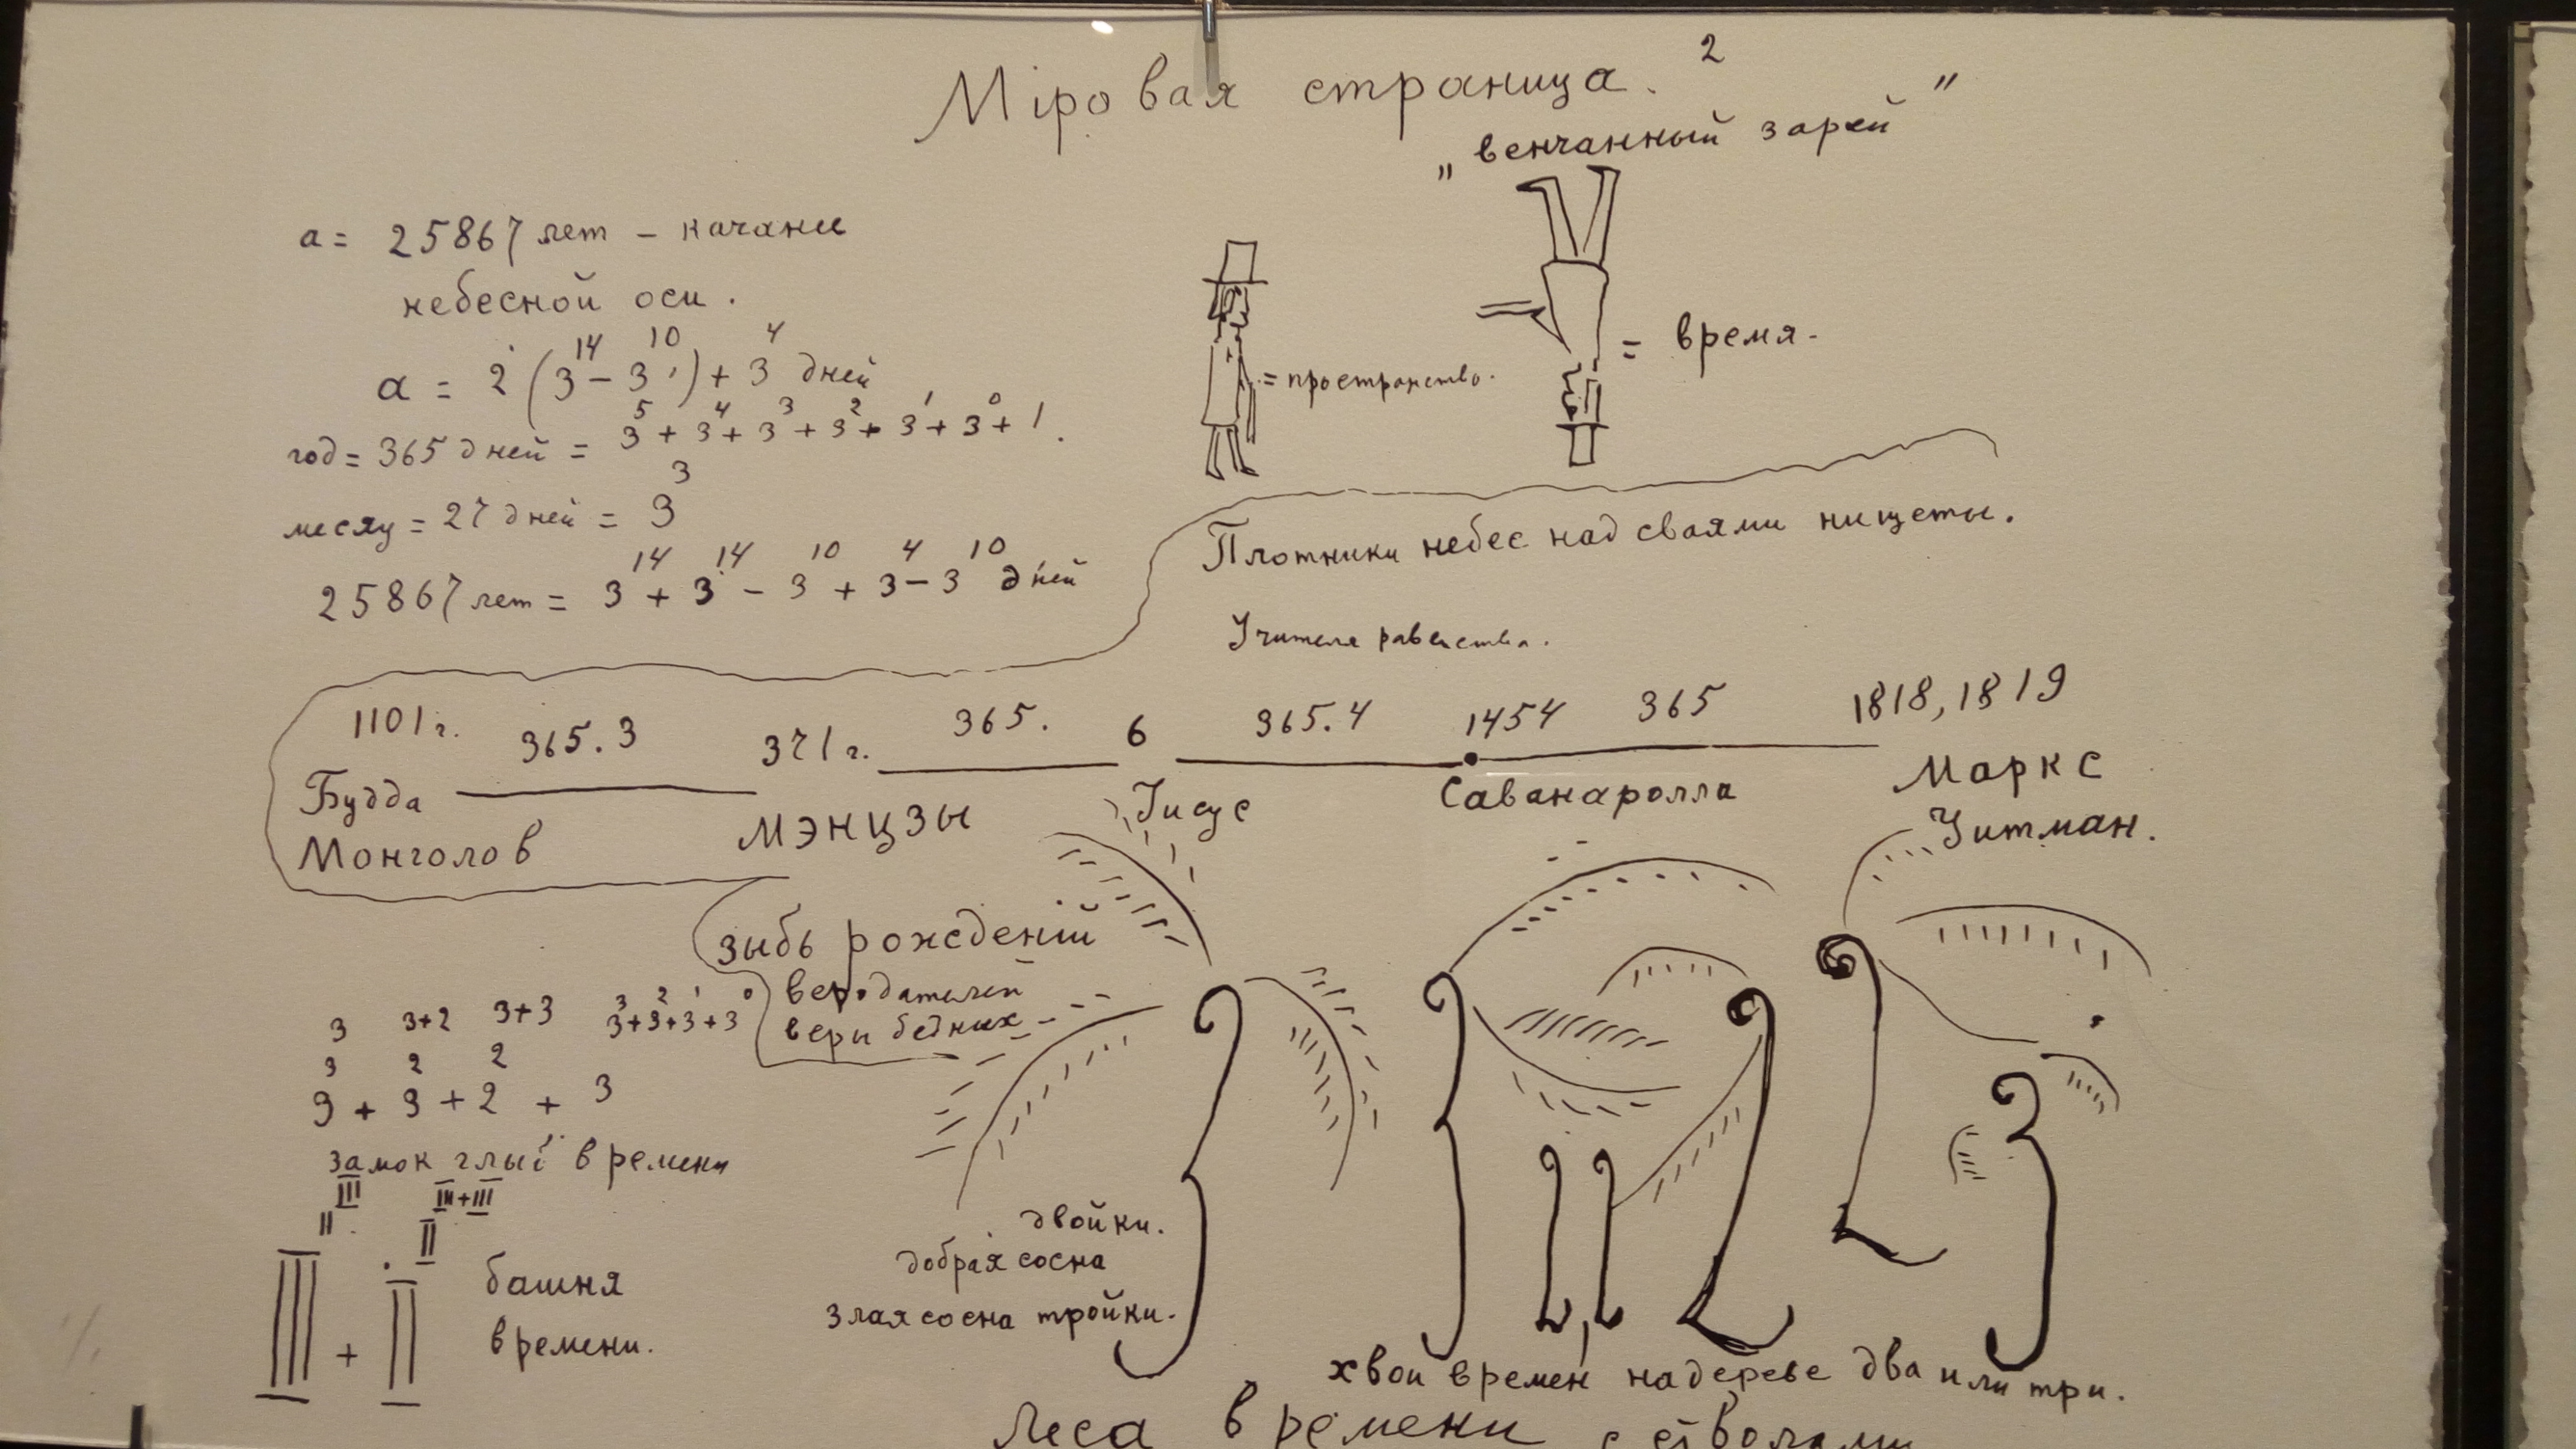 Мiровая страница. 2
„венчанный зарей"
a = 25867 лет – качани
небесной оси.
a = 2 (3¹⁴ – 3¹⁰) + 3⁴ дней
год = 365 дней = 3⁵ + 3⁴ + 3³ + 3² + 3¹ + 3⁰ + 1.
месяц = 27 дней = 3³
25867 лет = 3¹⁴ + 3¹⁴ – 3¹⁰ + 3⁴ – 3¹⁰ дней
= пространство.
= время.
Плотники небес над сваями нищеты.
Учителя равенства.
1101 г. 365.3 371 г. 365. 6 365.4 1454 365 1818, 1819
Будда
Монголов
мэнцзы
Iисус
Саванаролла
Маркс
Уитман.
зыбь рожденiй
веродателей
веры бедных
3 3+2 3+3 3³+3²+3¹+3⁰
3 2 2
3 + 3 + 2 + 3
замок глыб времени
III III+III
II II
III + II
башня
времени.
двойки.
добрая сосна
злая сосна тройки.
хвои времен, на дереве два или три.
Леса времени с стволами